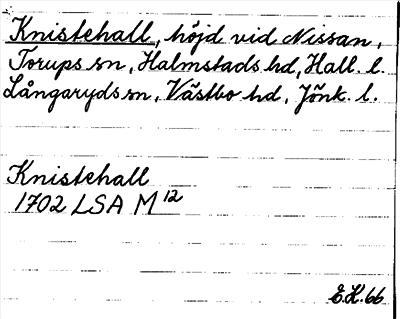 Knistehall, höjd vid Nissan,
Torups sn, Halmstads hd, Hall. l.
Långaryds sn, Västbo hd, Jönk. l.
Knistehall
1702 LSA M 12
E.H. 66